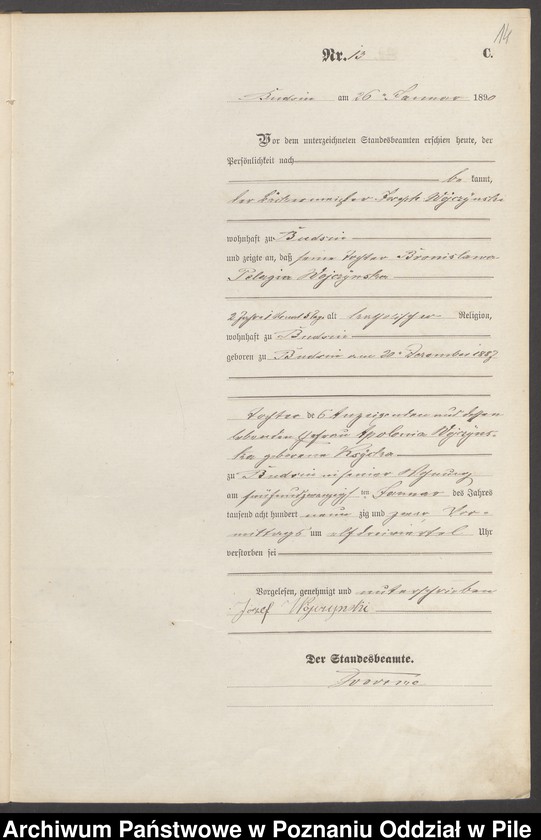 14
Nr. 13 C.
Budsin am 26n Januar 1890
Vor dem unterzeichneten Standesbeamten erschien heute, der
Persönlichkeit nach
be kannt,
der Bäckermeister Joseph Wojczynski
wohnhaft zu Budsin
und zeigte an, daß seine Tochter Bronislawa
Pelagia Wojczynska
2 Jahre 1 Monat 5 Tage alt katholischer Religion,
wohnhaft zu Budsin
geboren zu Budsin am 20n Dezember 1887
Tochter des Anzeigenden und dessen
lebenden Ehefrau Apolonia Wojczyns-
ka geborene
zu Budsin in seiner Wohnung
am fünfundzwanzigsten Januar des Jahres
tausend acht hundert neun zig und zwar Vor-
mittags um elf dreiviertel Uhr
verstorben sei
Vorgelesen, genehmigt und unterschrieben
Józef Wojczynski
Der Standesbeamte.
Archiwum Państwowe w Poznaniu Oddział w Pile